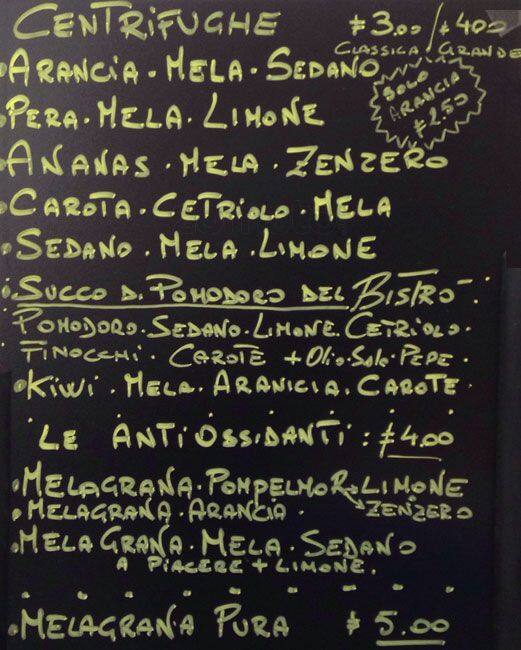 CENTRIFUGHE €3.00/€400
CLASSICA GRANDE
•ARANCIA•MELA•SEDANO
SOLO
ARANCIA
€2.50
•PERA•MELA•LIMONE
•ANANAS•MELA•ZENZERO
•CAROTA•CETRIOLO•MELA
•SEDANO•MELA•LIMONE
•SUCCO DI POMODORO DEL BISTRÒ
POMODORO•SEDANO•LIMONE•CETRIOLO•
FINOCCHI•CAROTE+Olio•Sale•PEPE•
•KIWI•MELA•ARANICIA•CAROTE
LE ANTIOSSIDANTI: €4.00
•MELAGRANA•POMPELMO R→LIMONE
•MELAGRANA•ARANCIA• →ZENZERO
•MELAGRANA•MELA•SEDANO
A PIACERE+LIMONE.
•MELAGRANA PURA € 5.00